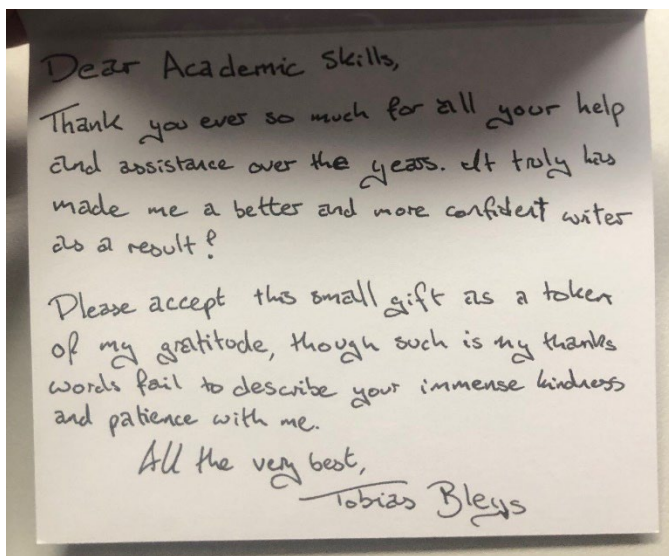 Dear Academic Skills,
Thank you ever so much for all your help
and assistance over the years. It truly has
made me a better and more confident writer
as a result!
Please accept this small gift as a token
of my gratitude, though such is my thanks
words fail to describe your immense kindness
and patience with me.
All the very best,
Tobias Bleys